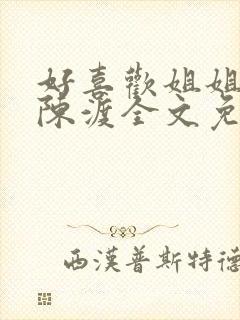 好喜歡姐姐
陳渡全文免
西漢普斯特德